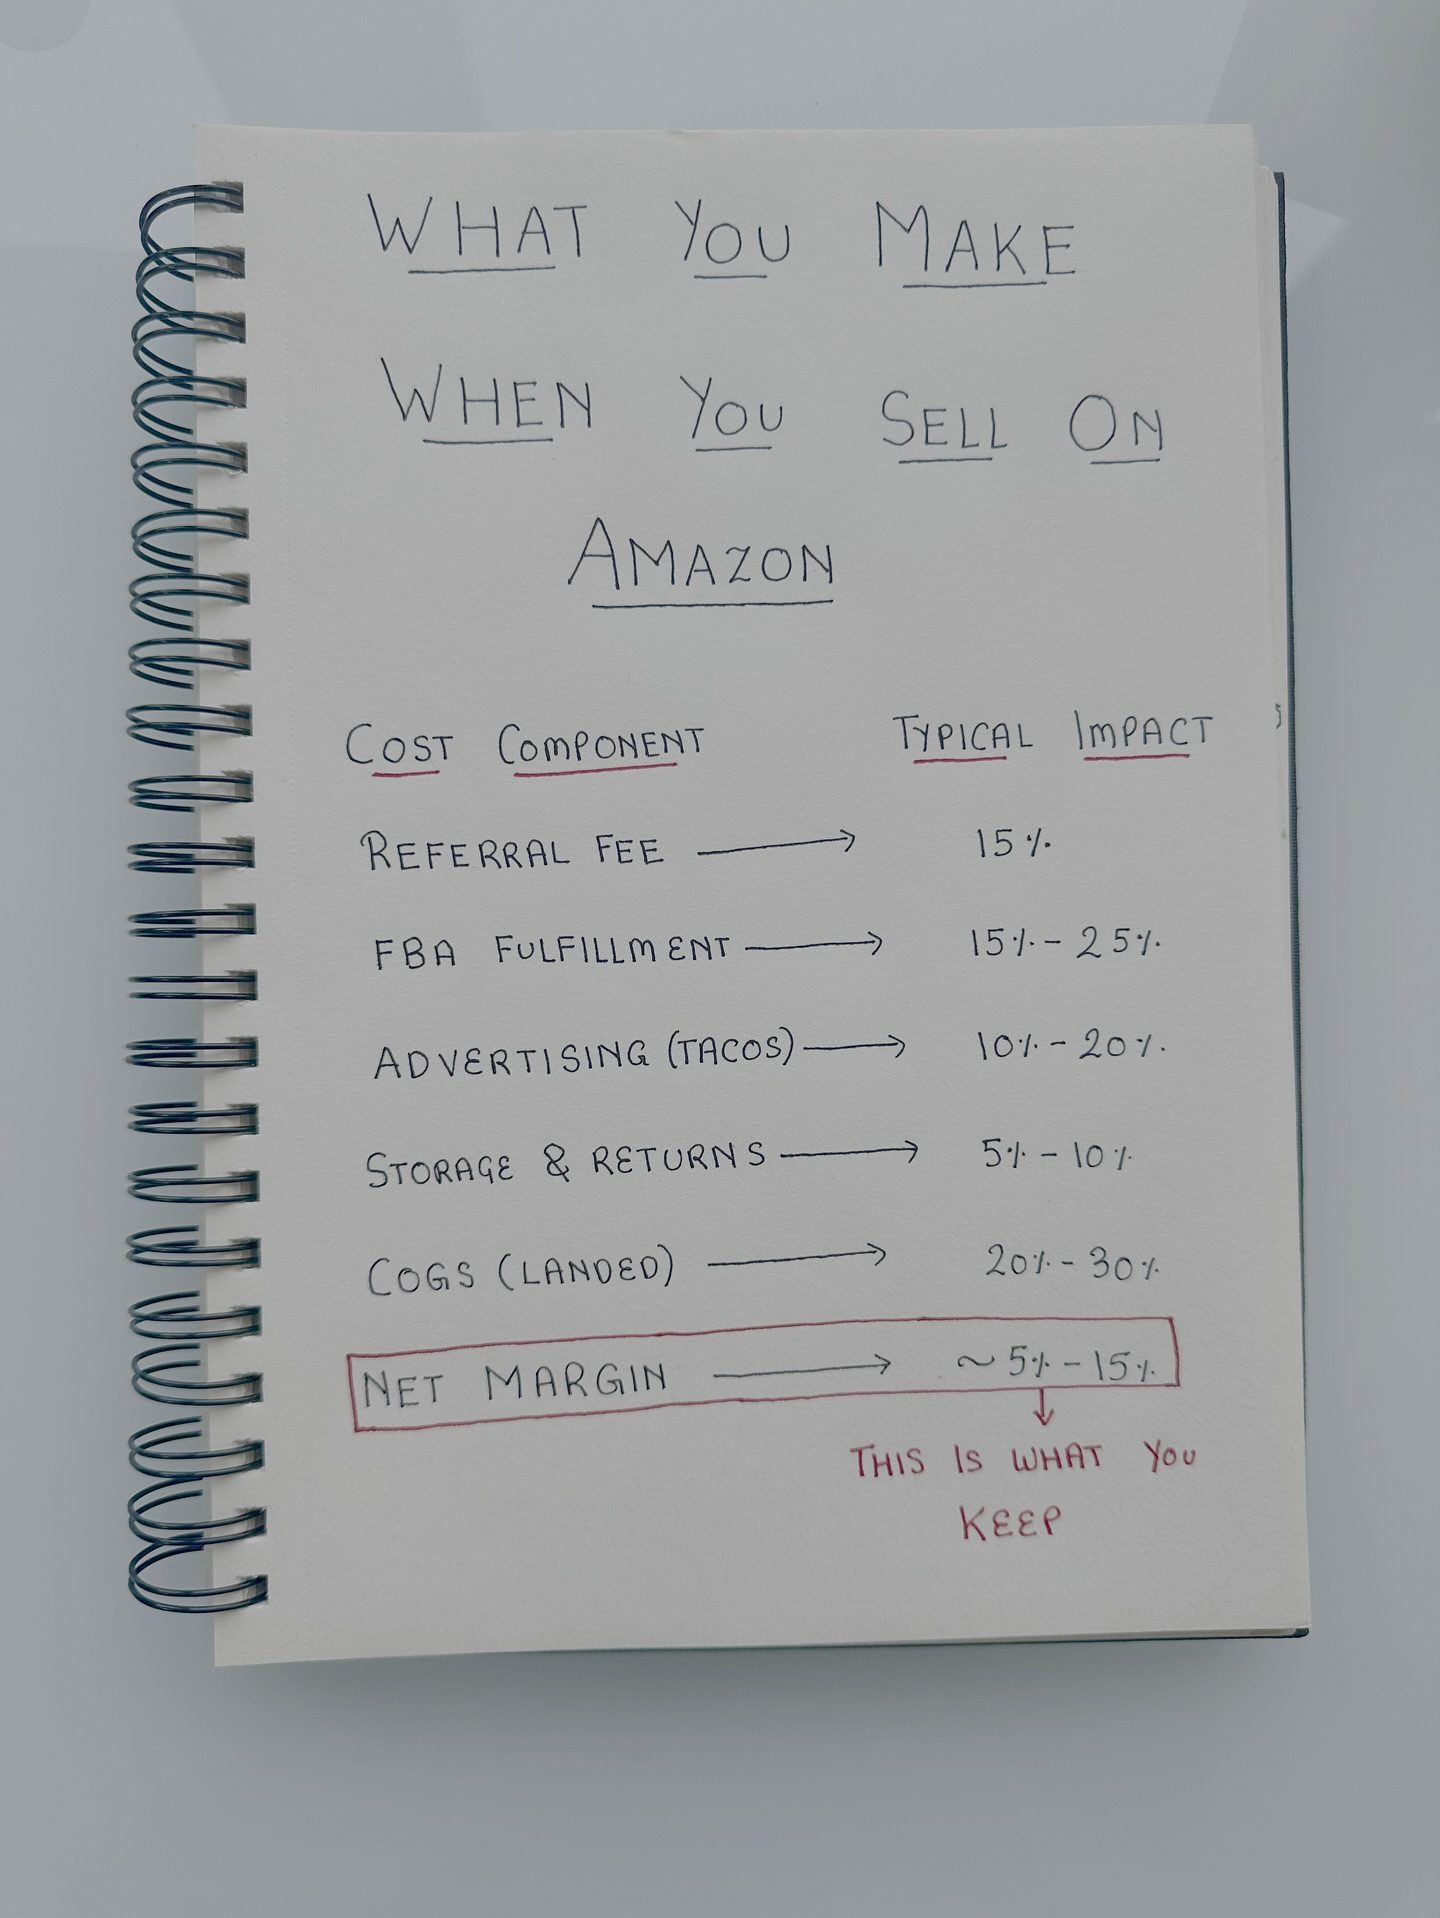 WHAT YOU MAKE
WHEN YOU SELL ON
AMAZON
COST COMPONENT TYPICAL IMPACT
REFERRAL FEE → 15%
FBA FULFILLMENT → 15% - 25%
ADVERTISING (TACOS) → 10% - 20%
STORAGE & RETURNS → 5% - 10%
COGS (LANDED) → 20% - 30%
NET MARGIN → ~ 5% - 15%
THIS IS WHAT YOU
KEEP